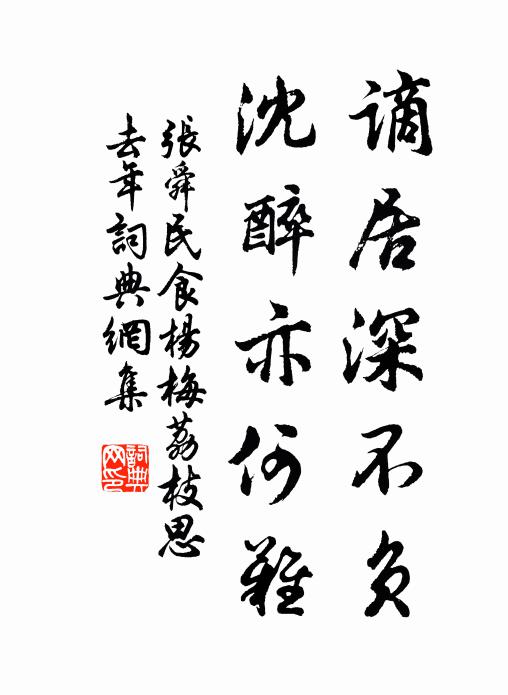 謫居深不負
沈醉亦何難
張舜民食楊梅荔枝思
去年詞典網集
詞典網印